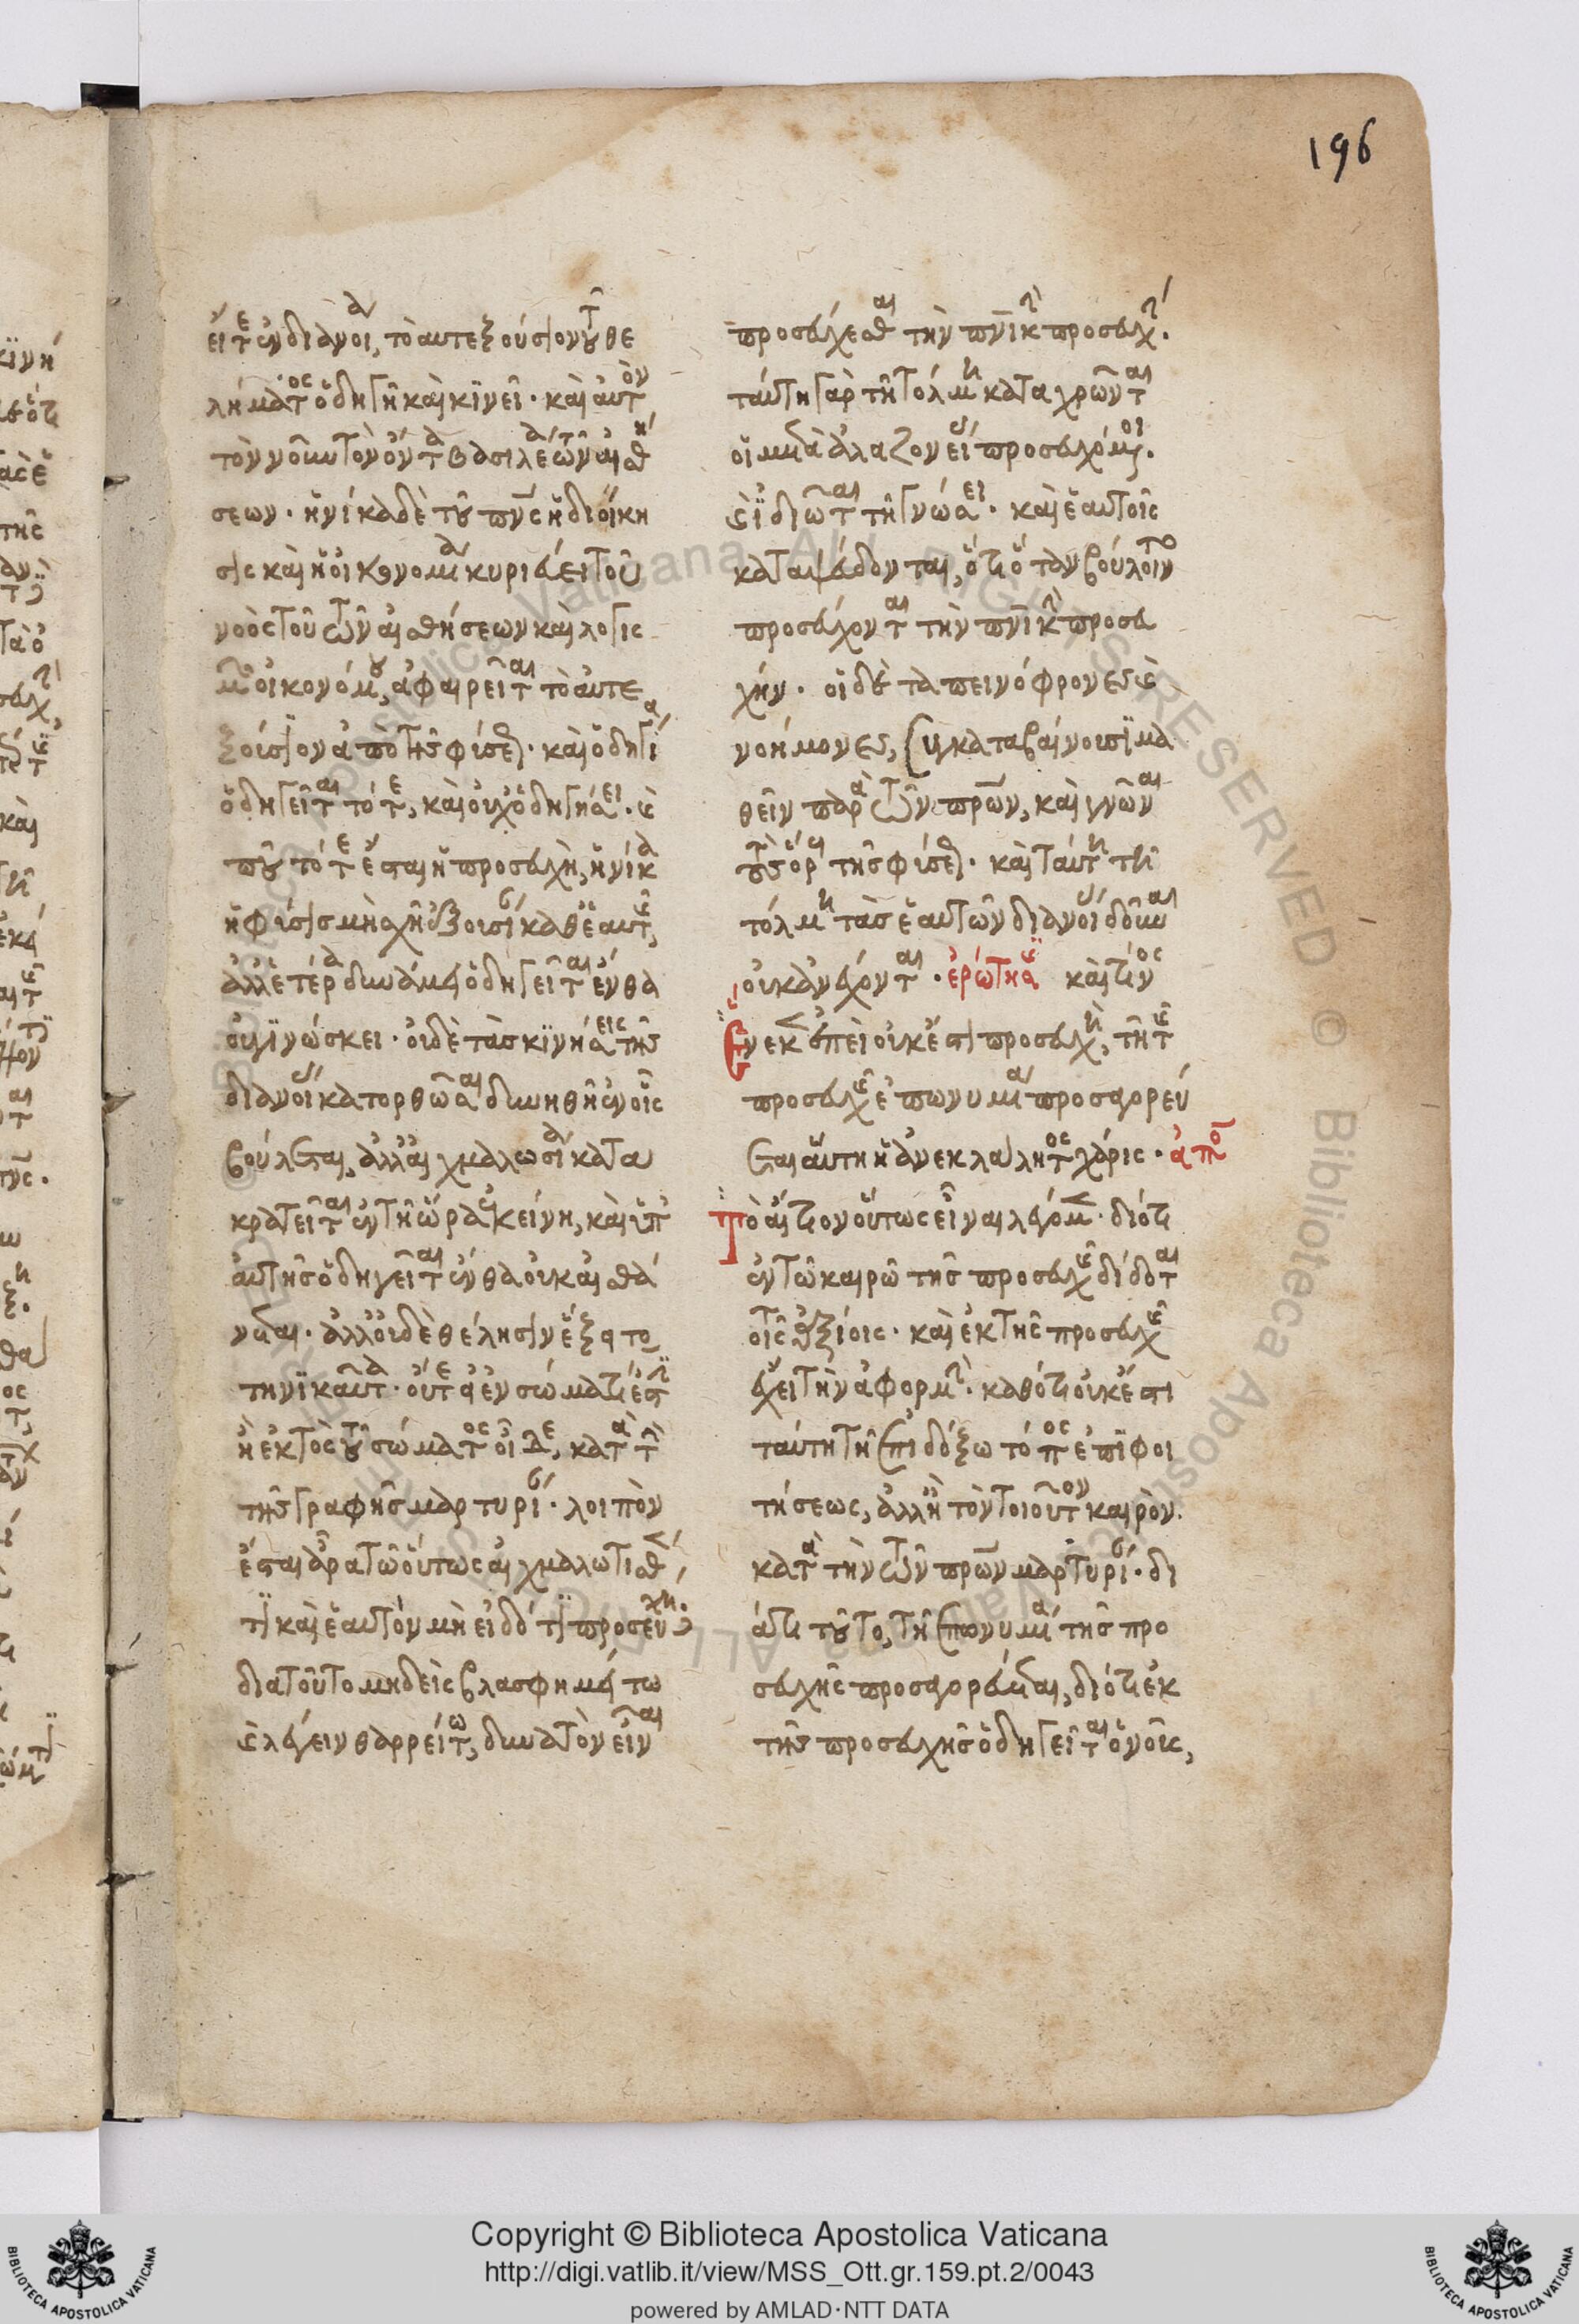 196
εἴτε ἐν διανοία, τὸ αὐτεξούσιον τοῦ θε
λήματος ὁδηγῆ καὶ κινεῖ· καὶ αὐτὸν
τὸν νοῦν τὸν ὄντα βασιλέα τῶν αἰσθή
σεων· ἡνίκα δὲ τοῦ πνς ἡ διοίκη
σις καὶ ἡ οἰκονομία κυριεύει τοῦ
νοὸς τοῦ τῶν αἰσθήσεων καὶ λογισ
μῶν οἰκονόμου, ἀφαιρεῖται τὸ αὐτε
ξούσιον ἀπὸ τῆς φύσεως· καὶ ὁδηγία
ὁδηγεῖται τότε, καὶ οὐχ ὁδηγήσει· καὶ
ποῦ τότε ἔσται ἡ προσευχὴ, ἡνίκα
ἡ φύσις μὴ σχῆ ἐξουσίαν καθ' ἑαυτῆς,
ἀλλ' ἑτέρα δυνάμει ὁδηγεῖται ἔνθα
οὐ γινώσκει· οὐδὲ τὰς κινήσεις τῆς
διανοίας κατορθῶσαι δυνηθῆ ἐν οἷς
βούλεται, ἀλλ' αἰχμαλωσία κατα
κρατεῖται ἐν τῆ ὥρα ἐκείνη, καὶ ὑπ'
αὐτῆς ὁδηγεῖται ἔνθα οὐκ αἰσθά
νεται· ἀλλ' οὐδὲ θέλησιν ἕξει το
τηνικαῦτα· οὔτε εἰ ἐν σώματι ἐστὶν
ἢ ἐκτὸς τοῦ σώματος οἶδε, κατὰ τὴν
τῆς γραφῆς μαρτυρίαν· λοιπὸν
ἔσται ἆρα τῶ οὕτως αἰχμαλωτισθέν
τι καὶ ἑαυτὸν μὴ εἰδότι προσευχή;
διατοῦτο μηδεὶς βλασφημείτω
καὶ λέγειν θαρρείτω, δυνατὸν εἶναι
προσεύχεσθαι τὴν πνικὴν προσευχήν·
ταύτη γὰρ τῆ τόλμη κατα χρῶνται
οἱ μετὰ ἀλαζονείας προσευχόμενοι·
καὶ ἰδιῶται τῆ γνώσει· καὶ ἑαυτοῖς
καταψεύδονται, ὅτι ὅταν βούλοιντο
προσεύχονται τὴν πνικὴν προσευ
χήν· οἱ δὲ ταπεινόφρονες καὶ
νοήμονες, συγκαταβαίνουσι μα
θεῖν παρὰ τῶν πρων, καὶ γνῶναι
τοὺς ὅρους τῆς φύσεως· καὶ ταύτη τῆ
τόλμη τὰς ἑαυτῶν διανοίας δοῦναι
οὐκ ἀνέχονται· ἐρώτησις καὶ τίνος
Ἕνεκεν ἐπεὶ οὐκ ἔστι προσευχὴ, τῆ τῆς
προσευχῆς ἐπωνυμία προσαγορεύ
εται αὕτη ἡ ἀνεκλάλητος χάρις· ἀπο
Τὸ αἴτιον οὕτως εἶναι λέγομεν· διότι
ἐν τῶ καιρῶ τῆς προσευχῆς δίδοται
τοῖς ἀξίοις· καὶ ἐκ τῆς προσευχῆς
ἔχει τὴν ἀφορμήν· καθότι οὐκ ἔστι
ταύτη τῆ ἐπιδόξω τόπος ἐπιφοι
τήσεως, ἀλλ' ἢ τὸν τοιοῦτον καιρὸν·
κατὰ τὴν τῶν πρων μαρτυρίαν· δι
άτι τοῦτο, τῆ ἐπωνυμία τῆς προ
σευχῆς προσαγορεύεται, διότι ἐκ
τῆς προσευχῆς ὁδηγεῖται ὁ νοῦς,
Copyright © Biblioteca Apostolica Vaticana
http://digi.vatlib.it/view/MSS_Ott.gr.159.pt.2/0043
powered by AMLAD·NTT DATA